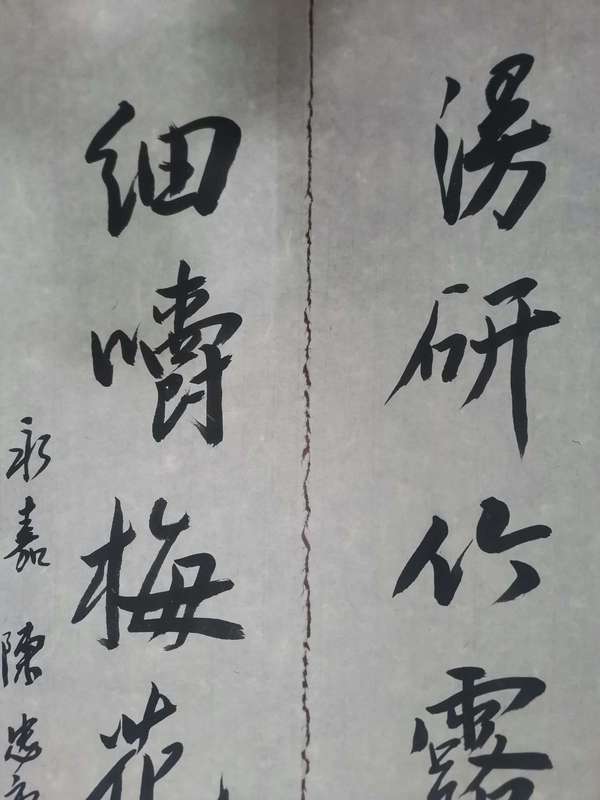 漫研竹露
細嚼梅花
永嘉陳忠